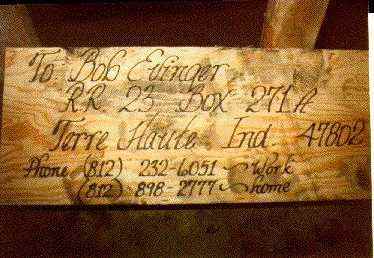 To Bob Edinger
RR 23 Box 271A
Terre Haute Ind. 47802
Phone (812) 232-6051 Work
(812) 898-2777 home